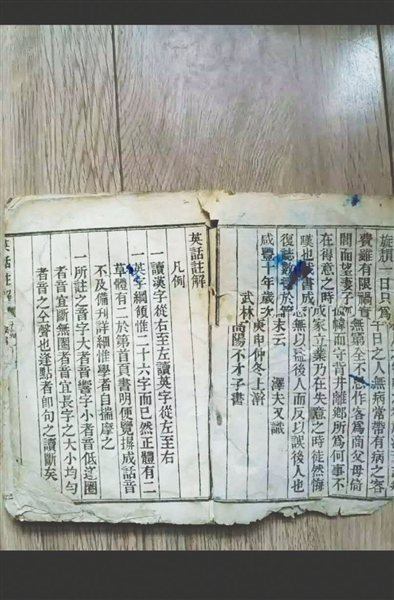 旋頭一日只爲千日之人無病常帶有病之容
費雖有限禍實無窮全不作客爲商父母倚
閭而望妻子幃而守背井離鄉所爲何事不
在得意之時成家立業乃在失意之時徒然悔
嘆也茲書成無以益後人而反以誤後人也
復誌數於篇末云 澤夫又識
咸豐十年歲次庚申仲冬上澣
武林高陽不才子書
英話註解
凡例
一讀漢字從右至左讀英字從左至右
一英字綱領惟二十六字而已然正體有二
草體有二於第首頁書明便覽揖成話音
不及備刊詳細惟學者自揣摩之
一所註之音字大者音響字小者音低逐圈
者音宜斷無圈者音宜長字之大小均勻
者音之全聲也逢點者卽句之讀斷矣
英話註解